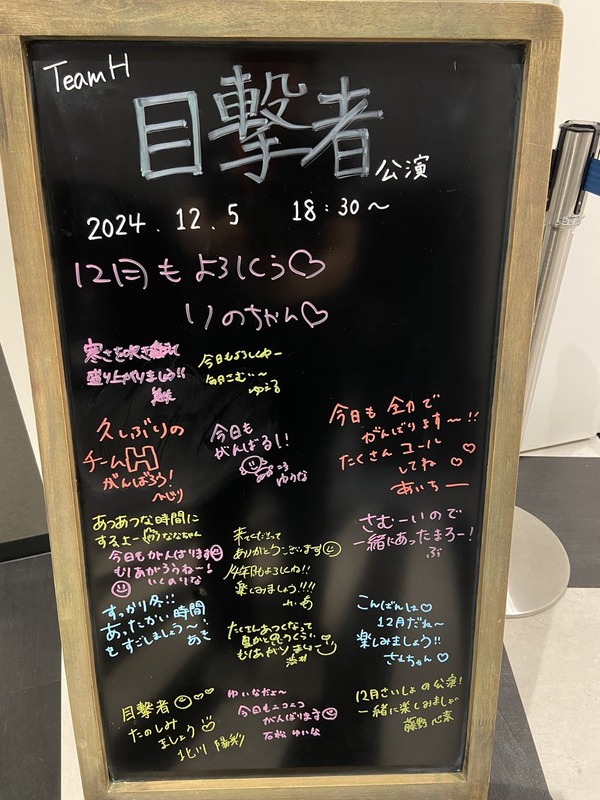 TeamH
目撃者
公演
2024.12.5 18:30～
12月もよろしくぅ♡
りのちゃん♡
寒さを吹き
盛り上がりましょう!!
今日もよろしくねー
毎日さむ〜
ゆうる
久しぶりの
チームH
がんばろう!
今日も
がんばるい!
ゆうな
今日も全力で
がんばります〜!!
たくさんコール
してね♡
あいちー
あつあつな時間に
するよー ななちゃん
今日もがんばります
もりあがろうねー!
いくのりな
来てくださって
ありがとうございます
今年同もよろしくね!!
楽しみましょう!!!!
さむーいので
一緒にあったまろー!
ぶ
すっかり冬!!
あったかい時間
をすごしましょう〜!
あき
たくさんあつくなって
こんばんは♡
12月だねー
楽しみましょう!!
さえちゃん♡
目撃者
たのしみ
ましょう
北川 陽彩
ゆいなだよ〜
今日もニコニコ
がんばります
石松 ゆいな
12月さいしょの公演!
一緒に楽しみましょ
藤野 心葉